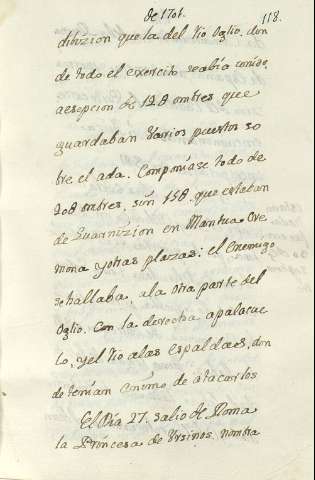 de 1701.
118.
dibizion que la del Rio Oglio, don
de todo el exercito se abia conido
a esepcion de 12 8 ombres que
guardaban varios puestos so
bre el ada. Componiase todo de
208 ombres, sin 158. que estaban
de Guarnizion en Mantua Cre
mona y otras plazas: el Enemigo
se hallaba, a la otra parte del
Oglio. Con la derecha a palacue
lo, y el Rio a las Espaldas, don
de tenian animo de atacarlos
El Dia 27. salio de Roma
la Princesa de Vrsinos, nombra